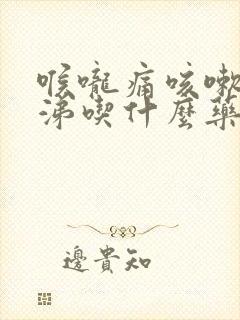 喉嚨痛咳嗽
涕喫什麼藥
邊貴知